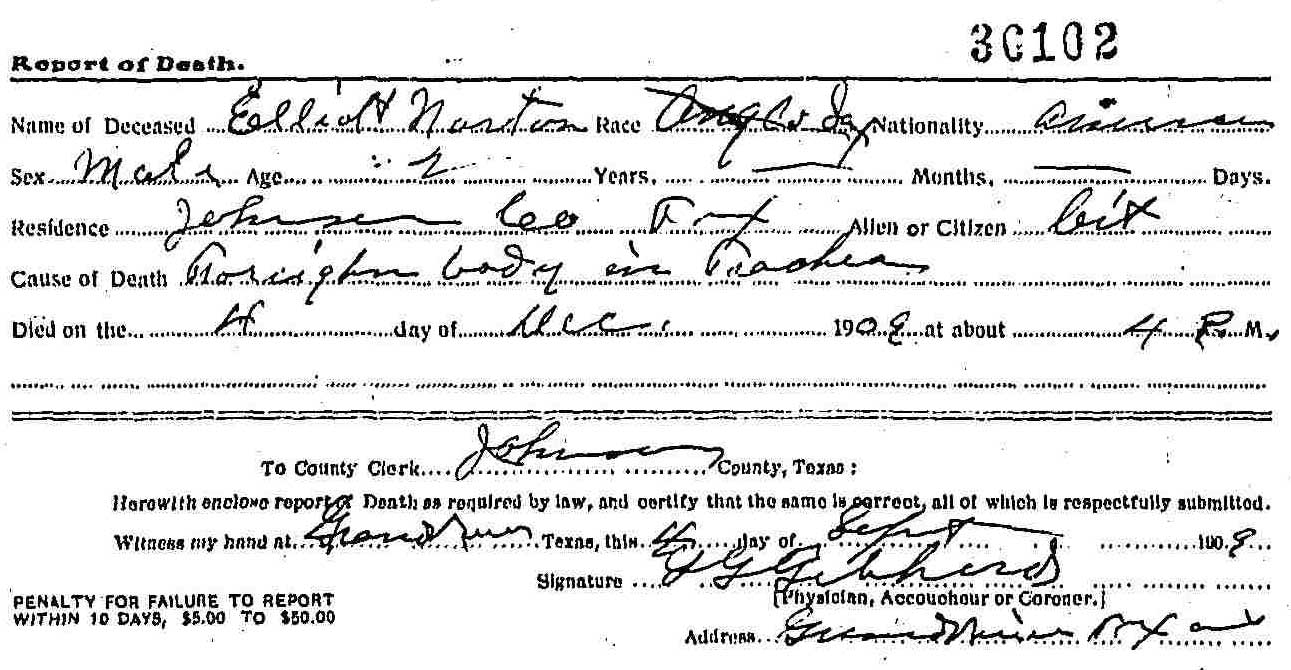 30102
Report of Death.
Name of Deceased Elliott Norton Race Nationality
Sex Male Age 2 Years, — Months, — Days.
Residence Johnson Co Alien or Citizen Cit
Cause of Death body in Trachea
Died on the 4 day of Dec. 1909 at about 4 P. M.
To County Clerk Johnson County, Texas:
Herewith enclose report of Death as required by law, and certify that the same is correct, all of which is respectfully submitted.
Witness my hand at Grandview Texas, this 4 day of Sept 1909
Signature
[Physician, Accouchour or Coroner.]
PENALTY FOR FAILURE TO REPORT
WITHIN 10 DAYS, $5.00 TO $50.00
Address Grandview